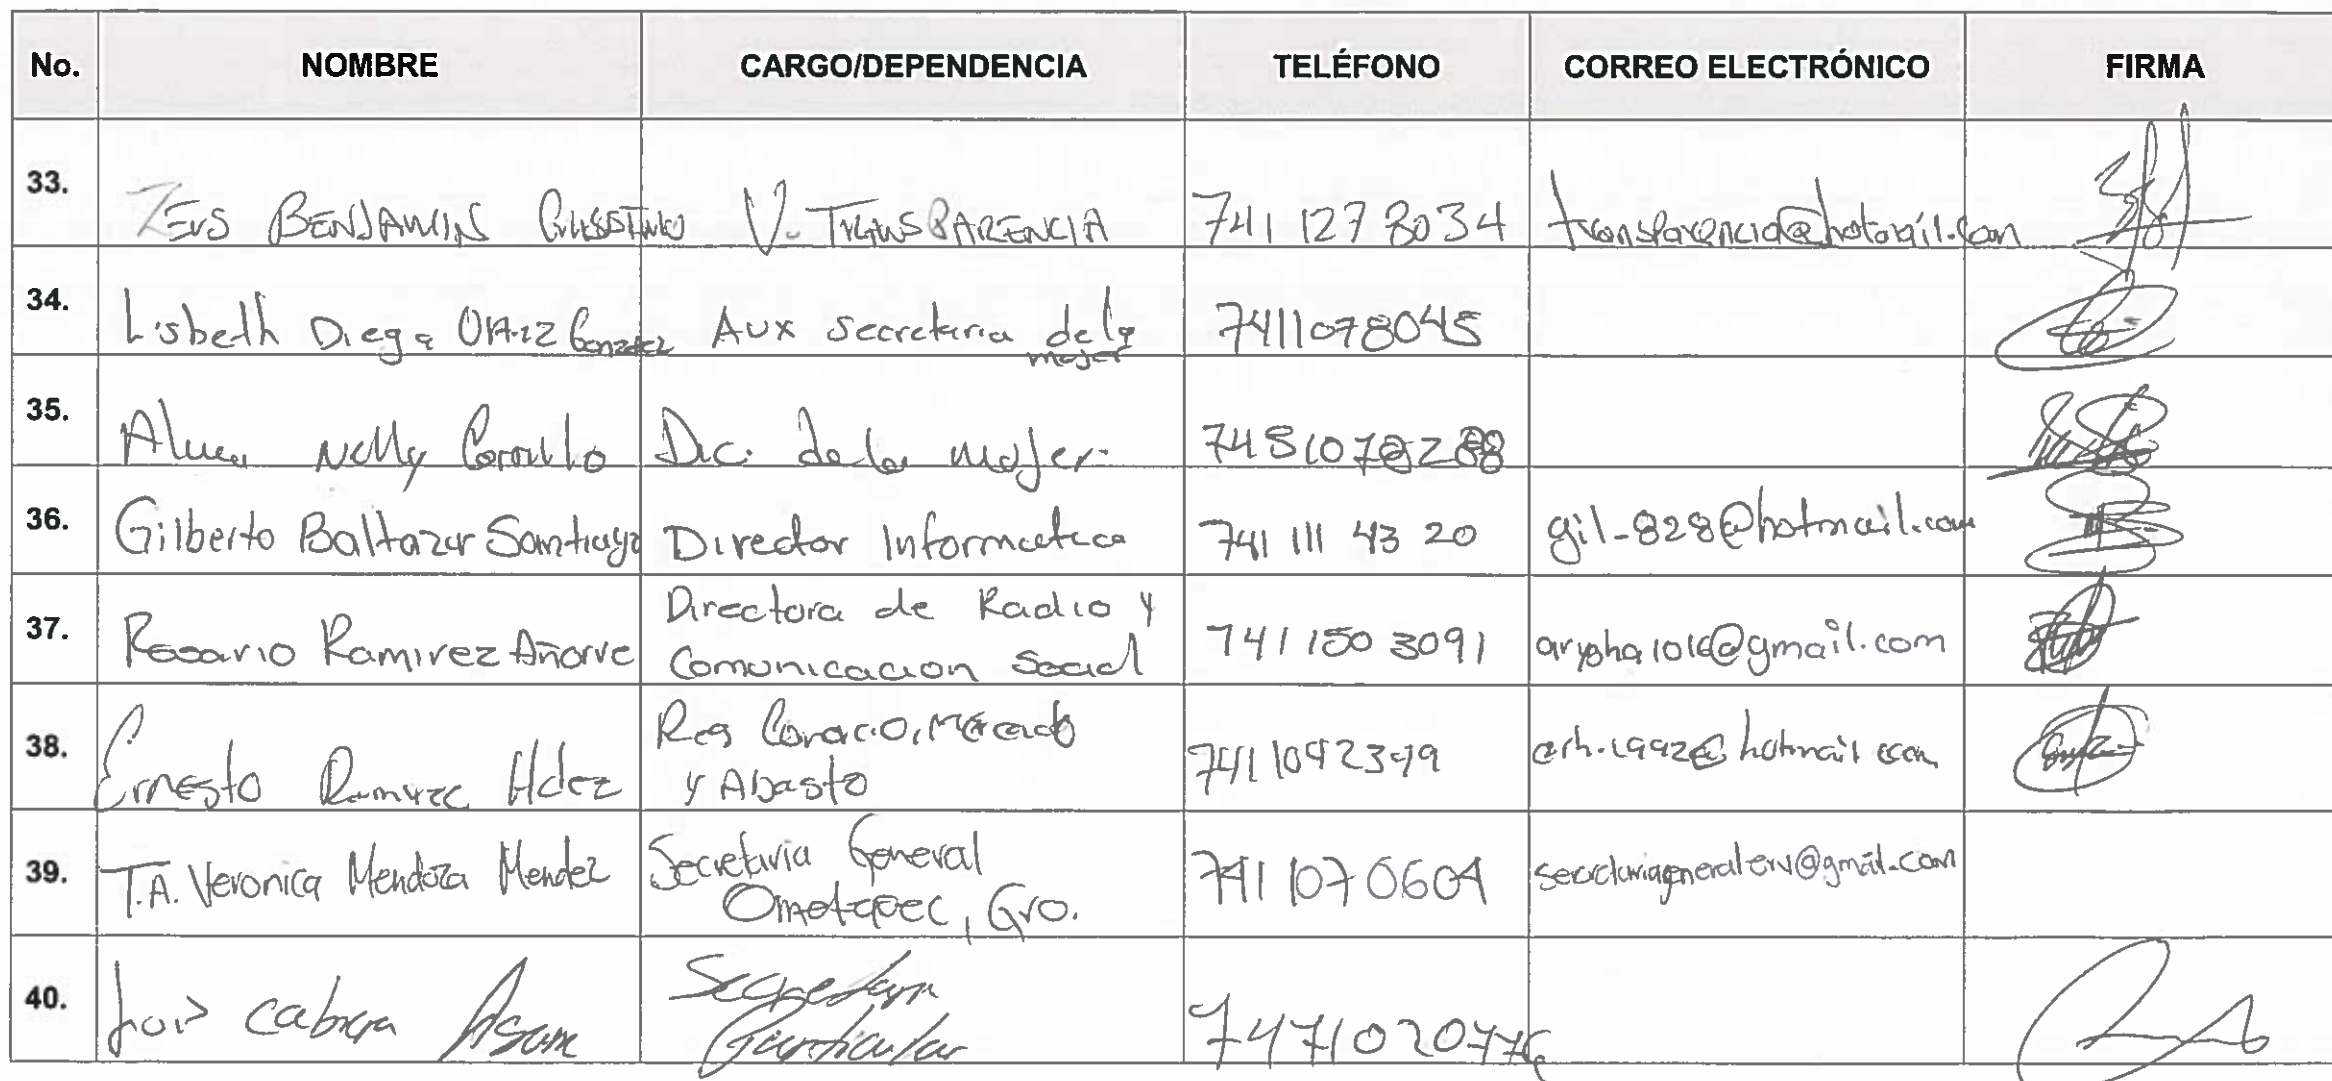 No. NOMBRE CARGO/DEPENDENCIA TELÉFONO CORREO ELECTRÓNICO FIRMA
33. ZEUS BENJAMIN V. TRANSPARENCIA 741 127 8034 transparencia@hotmail.com
34. Lisbeth Diega Ortiz Gonzalez Aux secretaria de la mujer 7411078045
35. Alma Nelly Carrillo Dic. de la mujer. 7451078288
36. Gilberto Baltazar Santiago Director Informatica 741 111 43 20 gil-828@hotmail.com
37. Rosario Ramirez Añorve Directora de Radio y
Comunicacion Social 741 150 3091 @gmail.com
38. Ernesto Ramirez Hdez Reg Comercio, Mercado
y Abasto 7411092399 erh-1992@hotmail com
39. T.A. Veronica Mendoza Mendez Secretaria General
Ometepec, Gro. 741 107 0604
40. Cabrera Secretario
Particular 7471020776